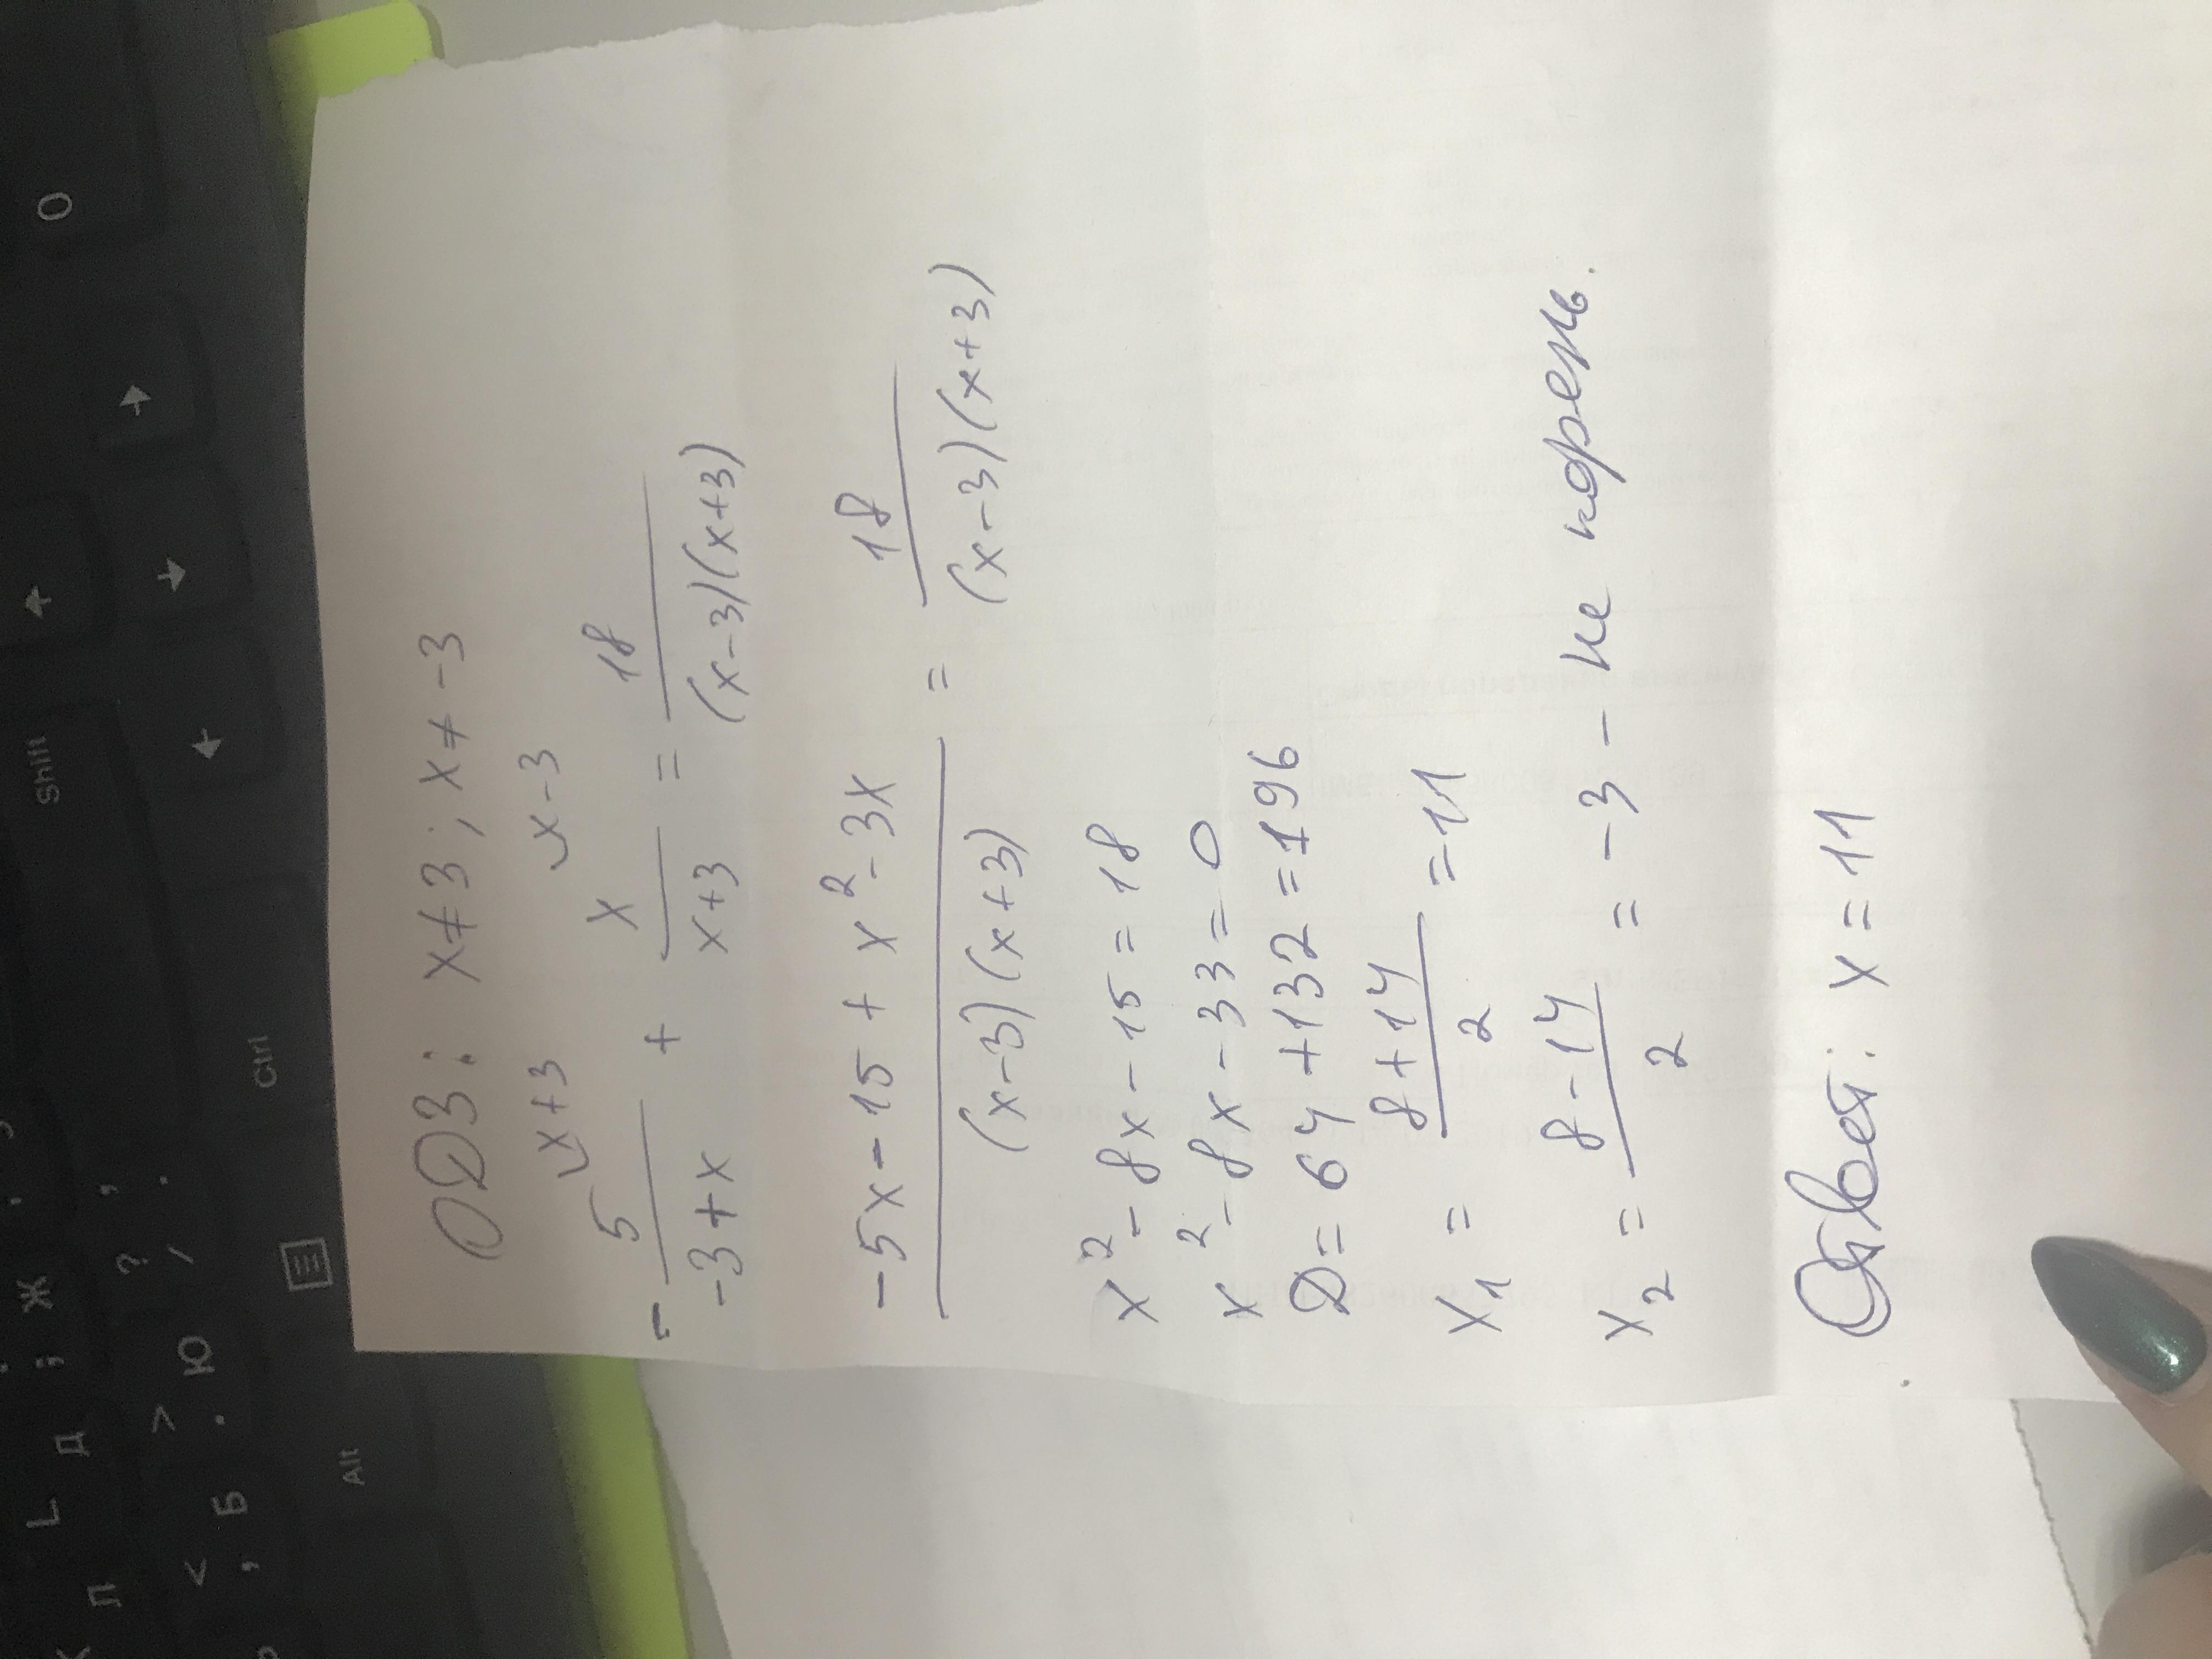 ОДЗ: x≠3; x≠-3
x+3 x-3
- 5/(-3+x) + x/(x+3) = 18/((x-3)(x+3))
(-5x-15+x²-3x)/((x-3)(x+3)) = 18/((x-3)(x+3))
x²-8x-15=18
x²-8x-33=0
D=64+132=196
x₁ = (8+14)/2 = 11
x₂ = (8-14)/2 = -3 - не корень.
Ответ: x=11
O
Shift
Ctrl
Alt
Л Ь Д ; Ж
< , Б . > Ю ? / , .